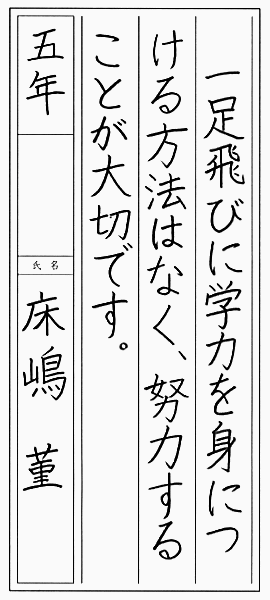 一足飛びに学力を身につ
ける方法はなく、努力する
ことが大切です。
五年
氏名
床嶋 菫